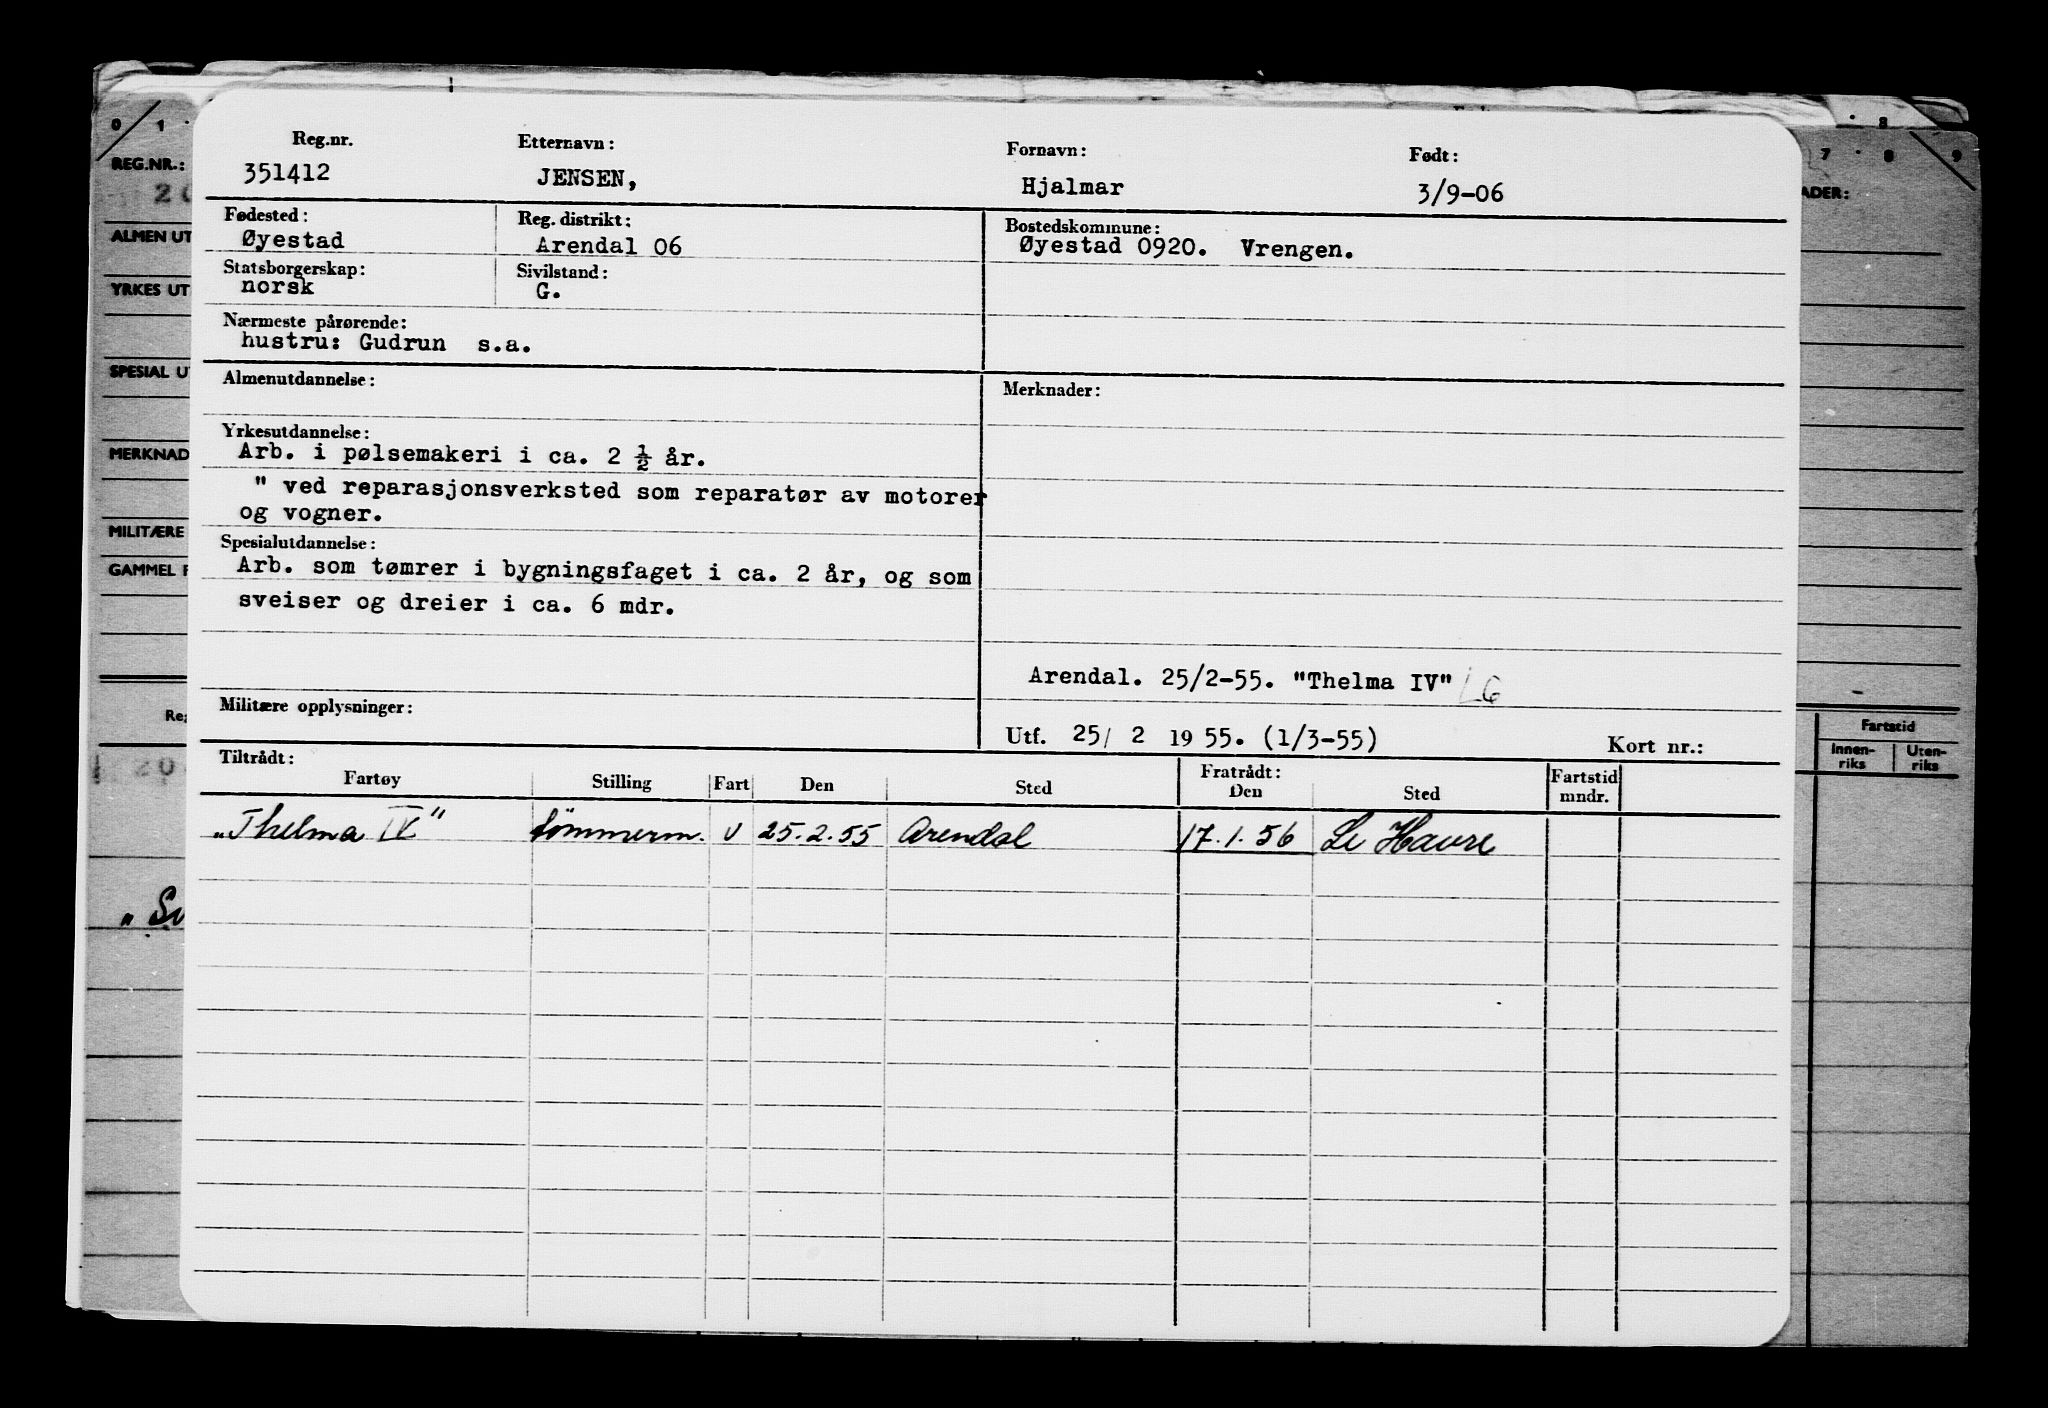 0 1 7 8 9
8
REG.NR.:
20
ALMEN UT
YRKES UT
SPESIAL UT
MERKNAD
MILITÆRE
GAMMEL F
ADER:
Reg
20
„Sv
Fartstid
Innen-riks Uten-riks
Reg.nr. Etternavn: Fornavn: Født:
351412 JENSEN, Hjalmar 3/9-06
Fødested: Reg. distrikt: Bostedskommune:
Øyestad Arendal 06 Øyestad 0920. Vrengen.
Statsborgerskap: Sivilstand:
norsk G.
Nærmeste pårørende:
hustru: Gudrun s.a.
Almenutdannelse: Merknader:
Yrkesutdannelse:
Arb. i pølsemakeri i ca. 2 ½ år.
" ved reparasjonsverksted som reparatør av motorer
og vogner.
Spesialutdannelse:
Arb. som tømrer i bygningsfaget i ca. 2 år, og som
sveiser og dreier i ca. 6 mdr.
Arendal. 25/2-55. "Thelma IV"
Militære opplysninger:
Utf. 25/ 2 19 55. (1/3-55) Kort nr.:
Tiltrådt: Fratrådt:
Fartøy Stilling Fart Den Sted Den Sted Fartstid mndr.
„Thelma IV" tömmerm. U 25.2.55 Arendal 17.1.56 Le Havre